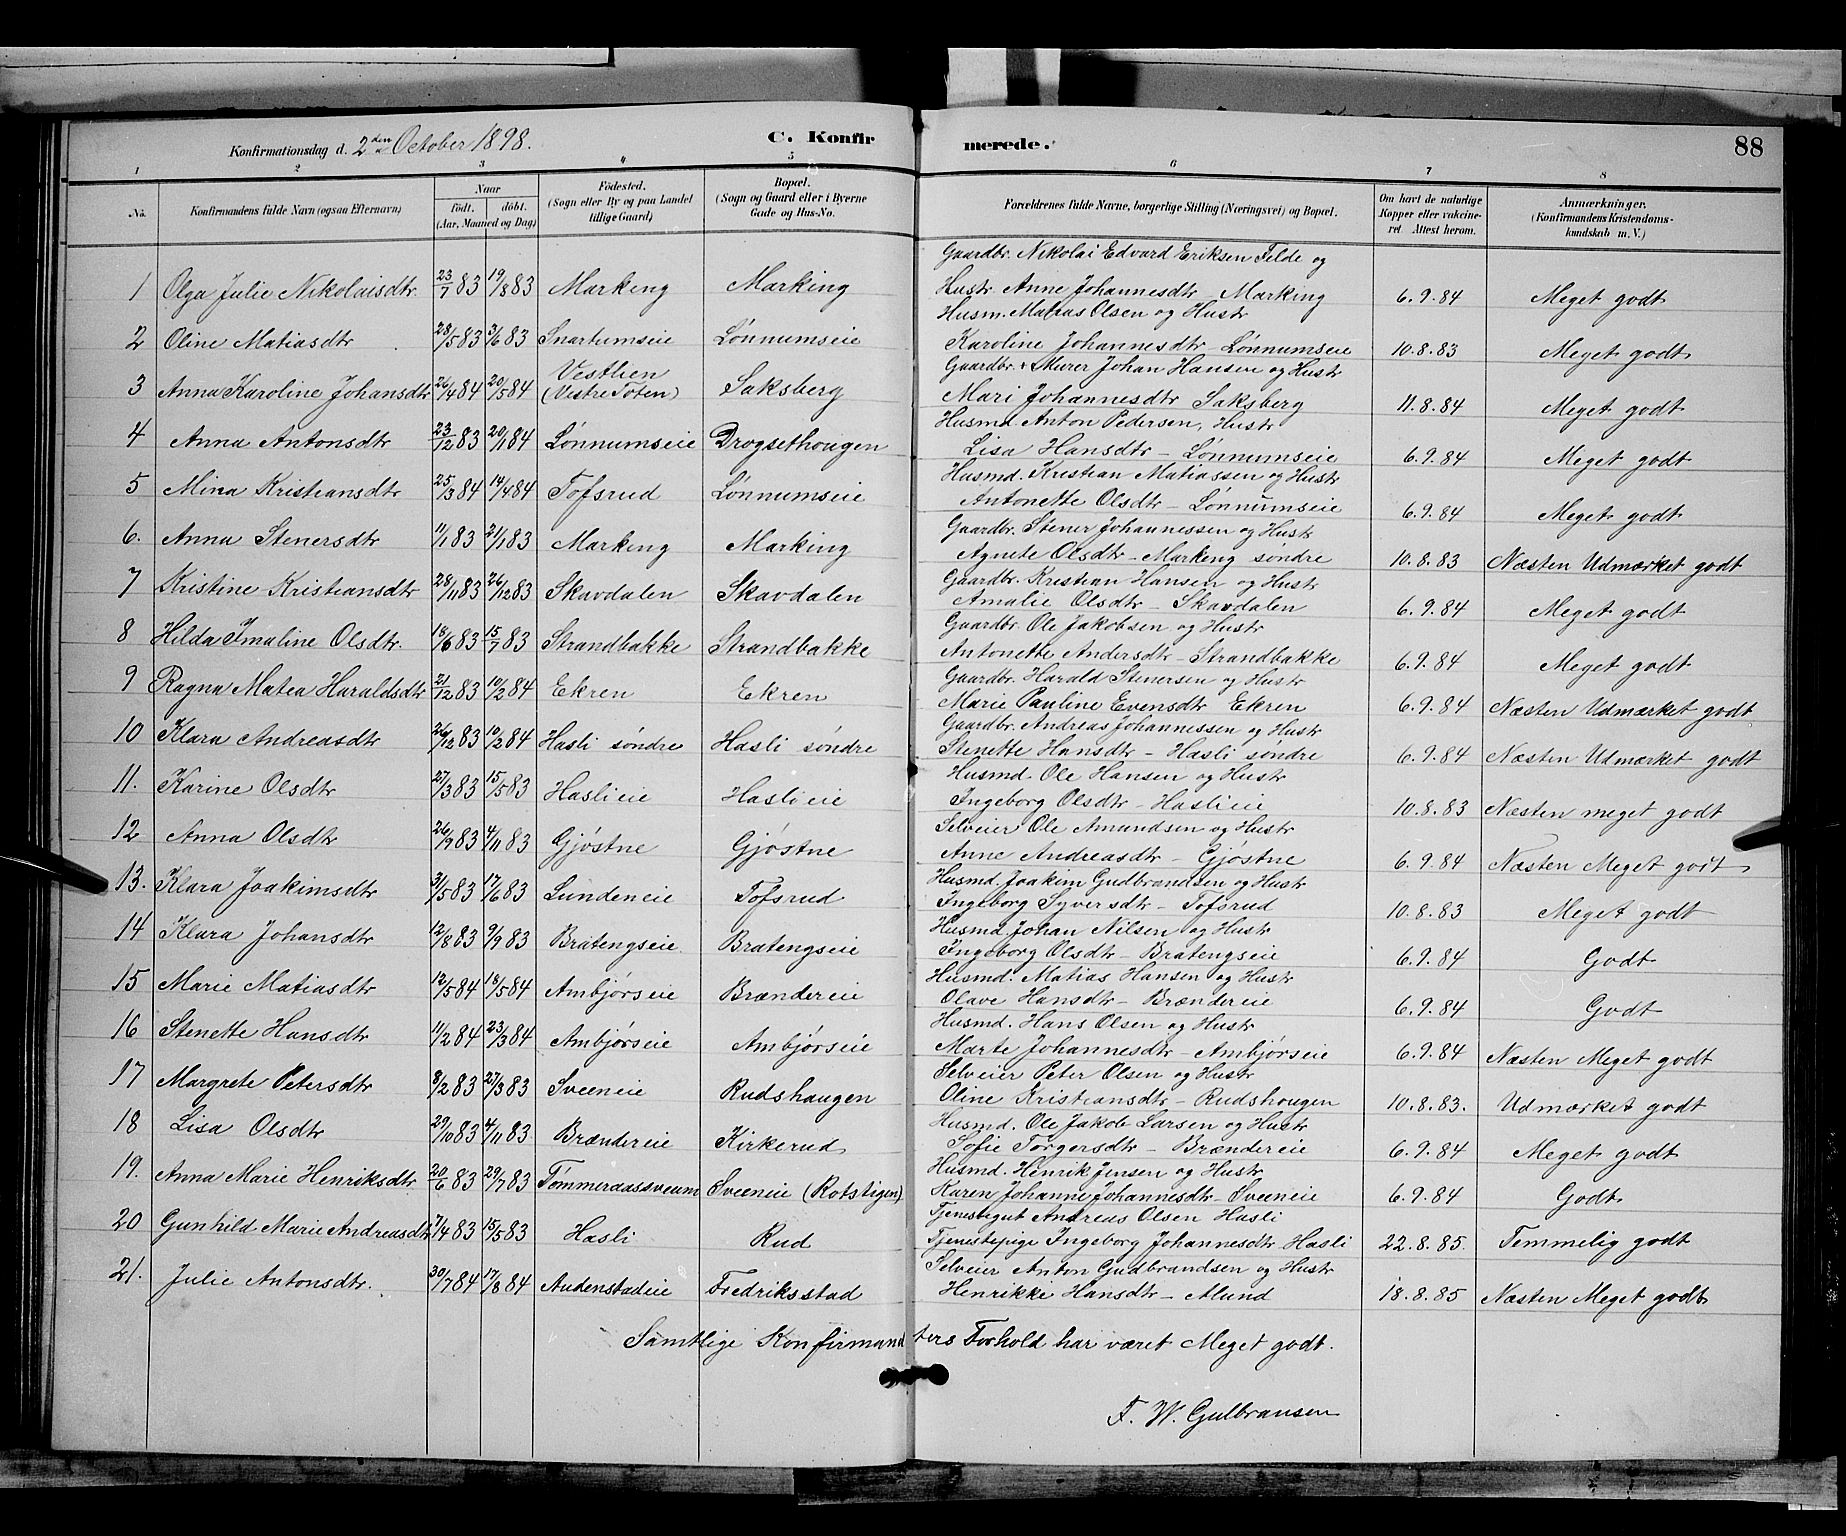 88
Konfirmationsdag d. 2den October 1898. C. Konfirmerede.
1 2 3 4 5 6 7 8
No. Konfirmandens fulde Navn (ogsaa Efternavn) Naar født. døbt. (Aar, Maaned og Dag) Fødested. (Sogn eller By og paa Landet tillige Gaard) Bopæl. (Sogn og Gaard eller i Byerne Gade og Hus-No. Forældrenes fulde Navne, borgerlige Stilling (Næringsvei) og Bopæl. Om havt de naturlige Kopper eller vakcineret. Attest herom. Anmærkninger. (Konfirmandens Kristendomskundskab m. V.)
Gaardbr. Nikolai Edvard Eriksen Felde og
1 Olga Julie Nikolaisdtr. 23/7 83 19/8 83 Marking Marking Hustr. Anne Johannesdtr Marking 6.9.84 Meget godt
Husm. Matias Olsen og Hustr
2 Oline Matiasdtr 28/5 83 3/6 83 Snartumseie Lønnumseie Karoline Johannesdtr Lønnumseie 10.8.83 Meget godt
Gaardbr. + Murer Johan Hansen og Hustr
3 Anna Karoline Johansdtr 26/4 84 20/5 84 Vestlien (Vestre Toten) Saksberg Mari Johannesdtr Saksberg 11.8.84 Meget godt
Husmd. Anton Pedersen, Hustr
4 Anna Antonsdtr 23/12 83 20/1 84 Lønnumseie Drogsethougen Lisa Hansdtr - Lønnumseie 6.9.84 Meget godt
Husmd. Kristian Matiassen og Hustr
5 Mina Kristiansdtr 25/3 84 14/4 84 Tofsrud Lønnumseie Antonette Olsdtr - Lønnumseie 6.9.84 Meget godt
Gaardbr. Stener Johannessen og Hustr
6. Anna Stenersdtr 11/1 83 21/1 83 Marking Marking Agnete Olsdtr - Marking søndre 10.8.83 Næsten Udmærket godt
Gaardbr. Kristian Hansen og Hustr
7 Kristine Kristiansdtr 28/11 83 26/12 83 Skavdalen Skavdalen Amalie Olsdtr - Skavdalen 6.9.84 Meget godt
Gaardbr. Ole Jakobsen og Hustr
8 Hilda Imaline Olsdtr. 18/6 83 15/7 83 Strandbakke Strandbakke Antonette Andersdtr - Strandbakke 6.9.84 Meget godt
Gaardbr. Harald Stenersen og Hustr
9 Ragna Matea Haraldsdtr 21/12 83 10/2 84 Ekren Ekren Marie Pauline Evensdtr Ekren 6.9.84 Næsten Udmærket godt
Gaardbr. Andreas Johannessen og Hustr
10 Klara Andreasdtr 26/12 83 10/2 84 Hasli søndre Hasli søndre Stenette Hansdtr - Hasli søndre 6.9.84 Næsten Udmærket godt
Husmd. Ole Hansen og Hustr
11. Karine Olsdtr 27/3 83 15/5 83 Haslieie Haslieie Ingeborg Olsdtr - Haslieie 10.8.83 Næsten meget godt
Selveier Ole Amundsen og Hustr
12 Anna Olsdtr 26/9 83 4/11 83 Gjøstne Gjøstne Anne Andreasdtr - Gjøstne 6.9.84 Næsten Meget godt
Husmd. Joakim Gudbrandsen og Hustr
13. Klara Joakimsdtr 31/5 83 17/6 83 Lundeneie Tofsrud Ingeborg Syversdtr - Tofsrud 10.8.83 Meget godt
Husmd. Johan Nilsen og Hustr
14 Klara Johansdtr 12/8 83 9/9 83 Bratengseie Bratengseie Ingeborg Olsdtr - Bratengseie 6.9.84 Godt
Husmd. Matias Hansen og Hustr
15 Marie Matiasdtr 12/5 84 18/5 84 Ambjørseie Brændereie Olave Hansdtr - Brændereie 6.9.84 Godt
Husmd. Hans Olsen og Hustr
16 Stenette Hansdtr 11/2 84 23/3 84 Ambjørseie Ambjørseie Marte Johannesdtr - Ambjørseie 6.9.84 Næsten Meget godt
Selveier Peter Olsen og Hustr
17 Margrete Petersdtr 8/2 83 27/3 83 Sveeneie Rudshaugen Oline Kristiansdtr - Rudshougen 10.8.83. Udmærket godt
Husmd. Ole Jakob Larsen og Hustr
18 Lisa Olsdtr 29/10 83 4/11 83 Brændereie Kirkerud Sofie Torgersdtr - Brændereie 6.9.84 Meget godt
Husmd. Henrik Jensen og Hustr
19. Anna Marie Henriksdtr. 20/6 83 29/7 83 Tømmeraassveum Sveeneie (Rotstigen) Karen Johanne Johannesdtr - Sveeneie 6.9.84 Godt
Tjenestegut Andreas Olsen Hasli
20 Gunhild Marie Andreasdtr 7/4 83 15/5 83 Hasli Rud Tjenestepige Ingeborg Johannesdtr Hasli 22.8.85. Temmelig godt
Selveier Anton Gudbrandsen og Hustr
21. Julie Antonsdtr. 30/7 84 17/8 84 Audenstadeie Fredriksstad Henrikke Hansdtr - Alund 18.8.85 Næsten Meget godt
Samtlige Konfirmanters Forhold har været Meget godt.
F. W. Gulbransen